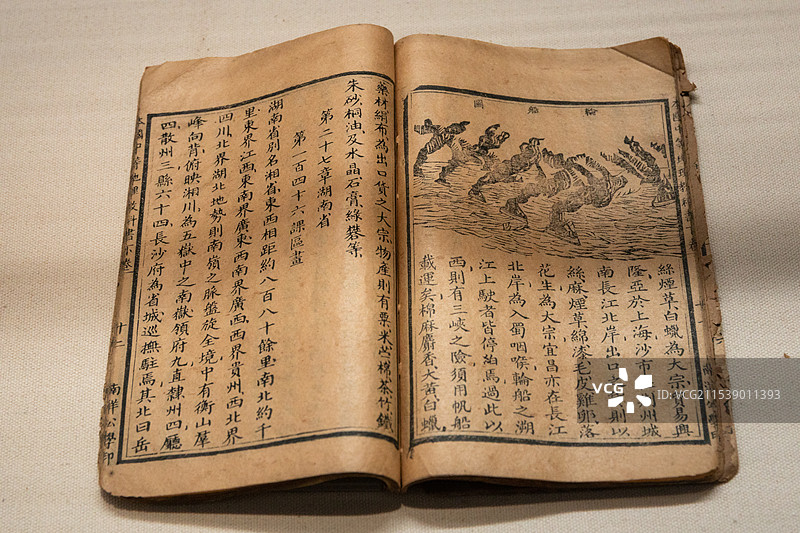 輪船圖
絲煙草白蠟為大宗貿易興
隆亞於上海沙市州城
南長江北岸出口則以
絲麻煙草綿漆毛皮雞卵落
花生為大宗宜昌亦在長江
北岸為入蜀咽喉輪船之溯
江上駛者皆停泊焉過此以
西則有三峽之險須用帆船
載運矣棉麻麝香大黃白蠟
藥材絹布為出口貨之大宗物產則有粟米豆棉茶竹鐵
朱砂桐油及水晶石膏綠礬等
第二十七章湖南省
第一百四十六課區畫
湖南省別名湘省東西相距約八百八十餘里南北約千
里東界江西東南界廣東西南界廣西西界貴州西北界
四川北界湖北地勢則南嶺之脈盤旋全境中有衡山羣
峰向背俯映湘川為五嶽中之南嶽領府九直隸州四廳
四散州三縣六十四長沙府為省城巡撫駐焉其北曰岳
地理教科書
十二
南洋公學印
VCG
vcg.com/211539011393